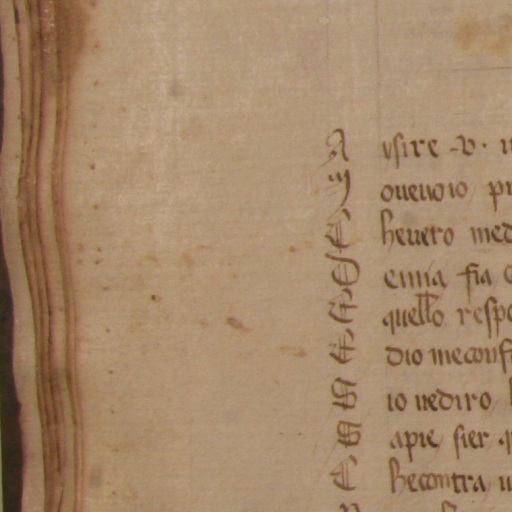 A usire .v.
M oueuoio
C heuero med
C enna fia
E quello respo
E dio meconf
S io uediro
S apie sier
C hecontra